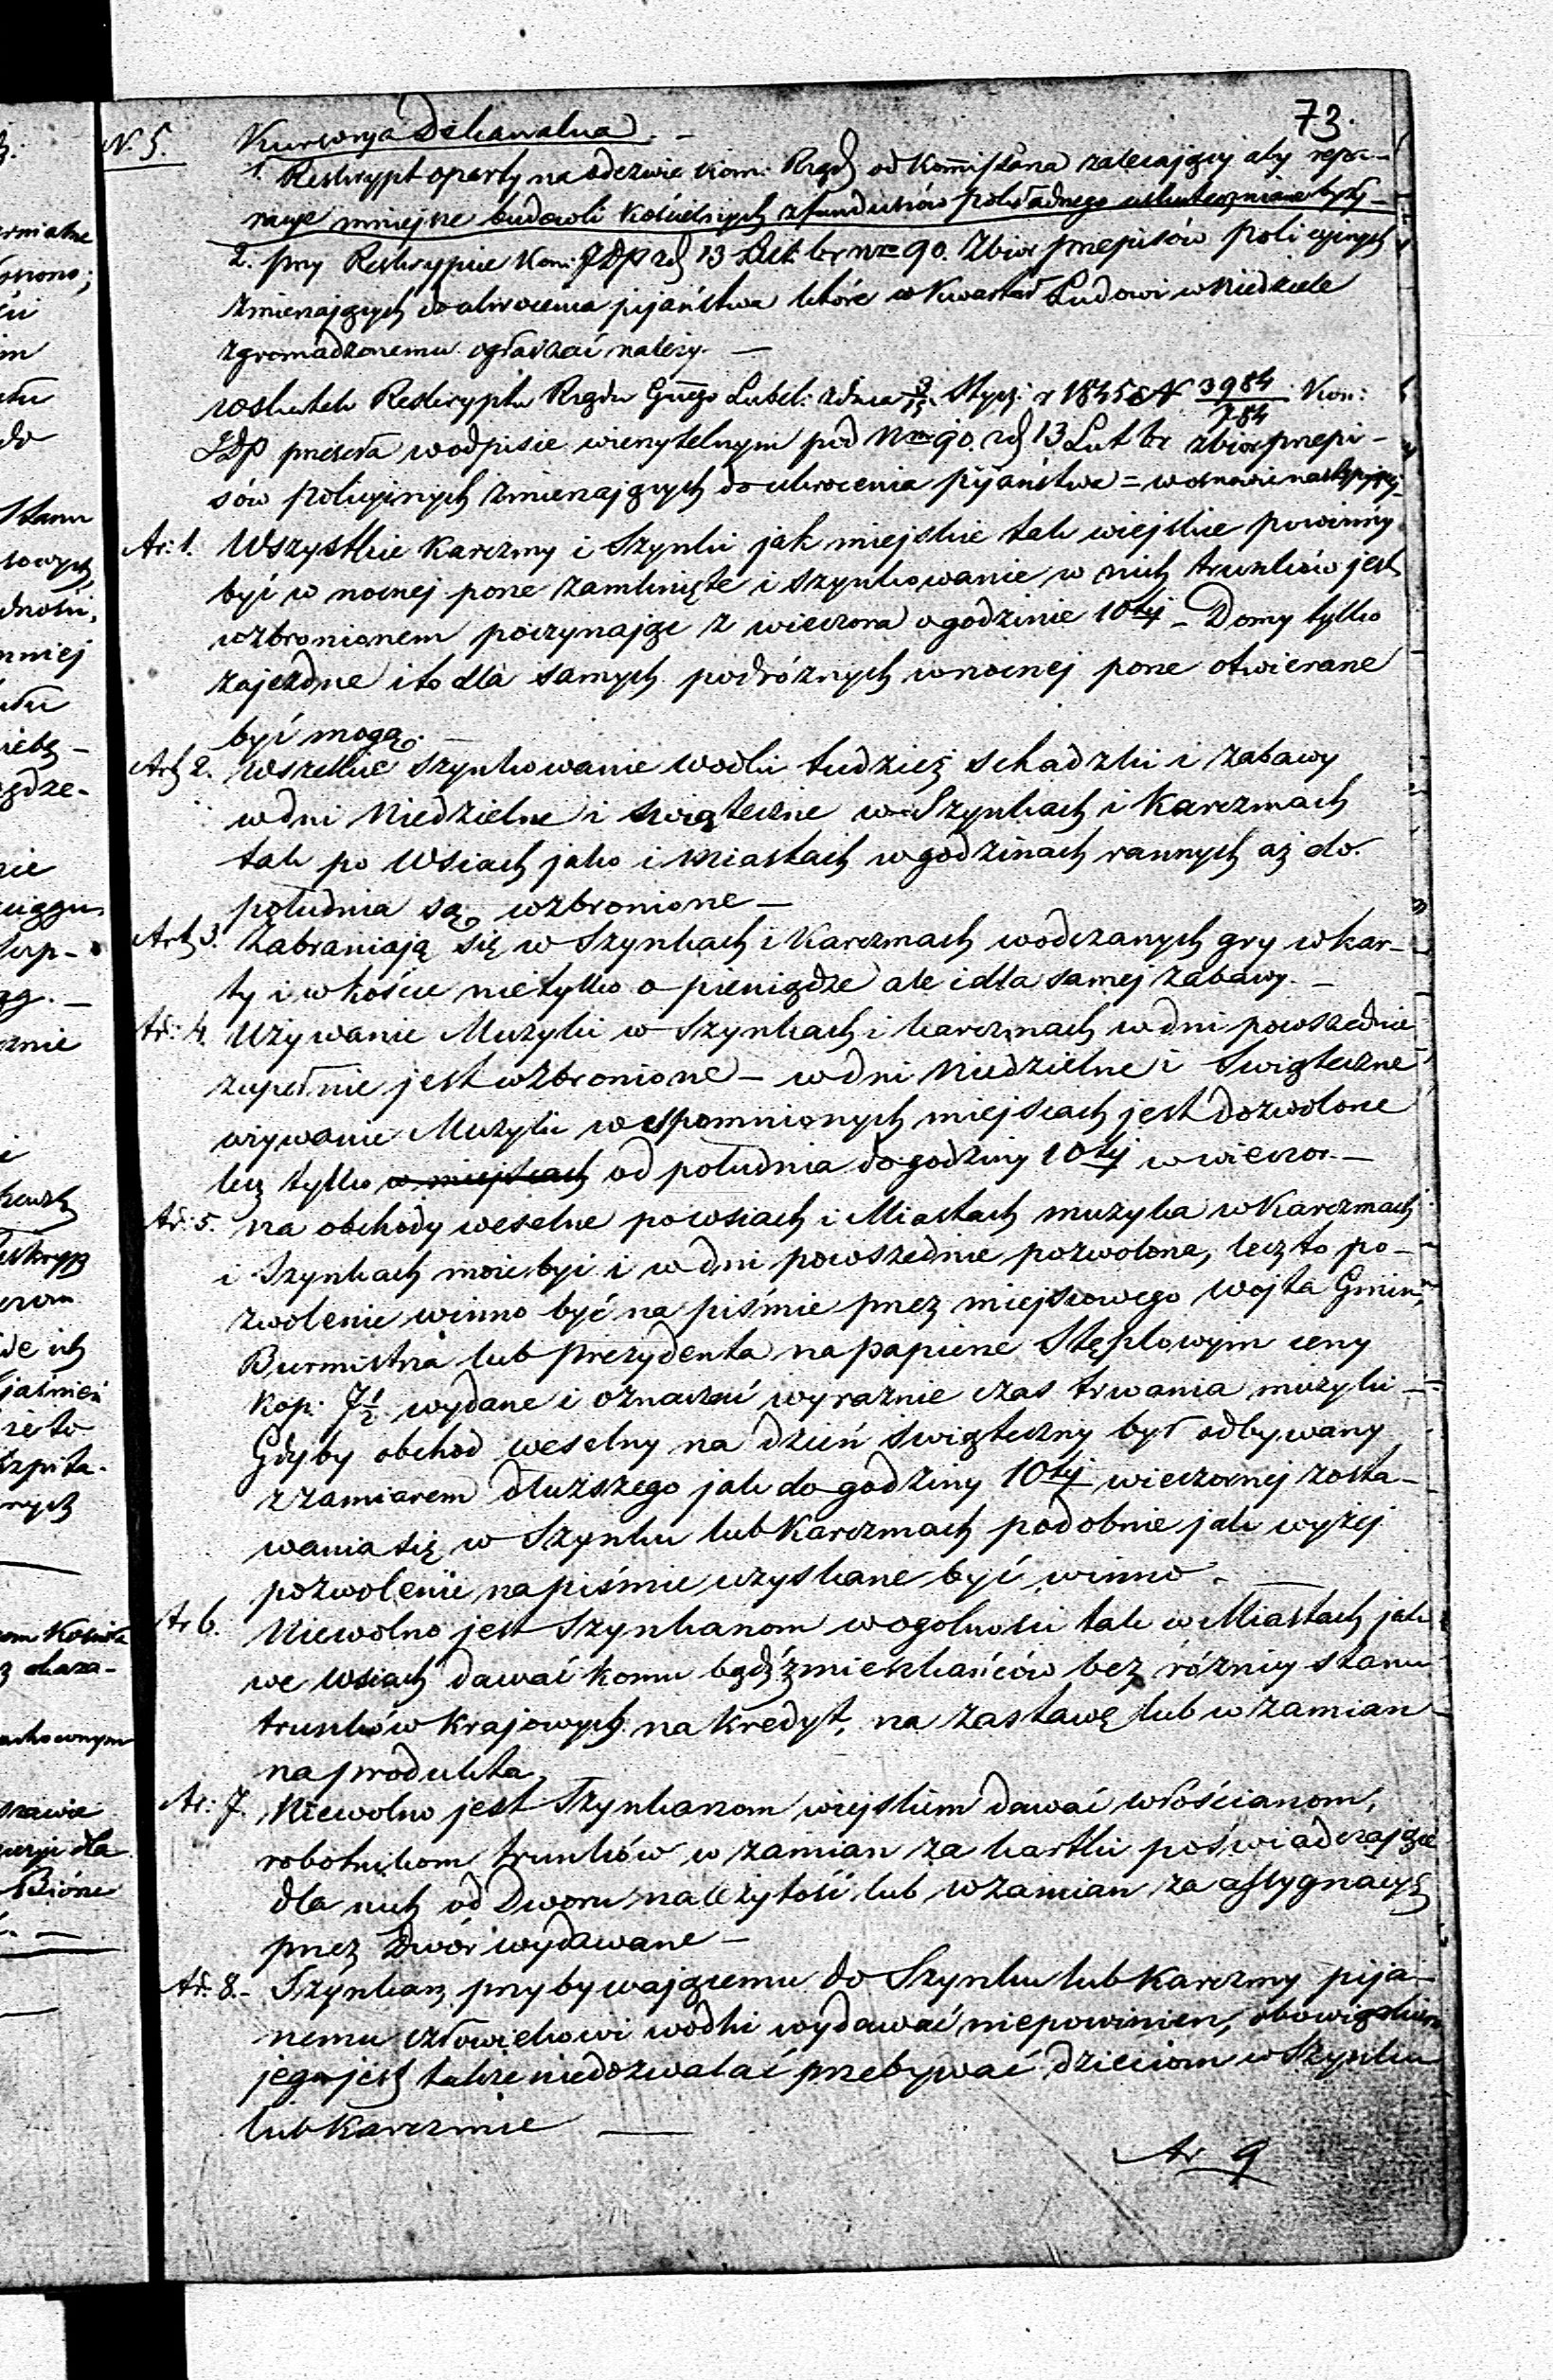 73.
N. 5. Kurrenga Dekanalna. —
1. Reskrypt oparty na odezwie Kom: Rząd od Kommissarza zalecający aby repe-
racye mniejsze budowli kościelnych z funduszów pokładnego uskuteczniane były —
2. przy Reskrypcie Kom: JDP z d 13 Lut. br nro 90. Zbiór przepisów policyjnych
zmierzających do ukrócenia pijaństwa które w Kwartał Ludowi w Niedziele
zgromadzonemu ogłaszać należy. —
w skutek Reskryptu Rządu Gu͞ego Lubel: z dnia 3/15 Stycz: r 1845 N 3984/784 Kon:
JDP przesyła w odpisie wierzytelnym pod Nrem 90. z d 13 Lut br zbiór przepi-
sów policyjnych zmierzających do ukrócenia pijaństwa = w osnowie następującej
Ar: 1. Wszystkie Karczmy i Szynki jak miejskie tak wiejskie powinny
być w nocnej porze zamknięte i szynkowanie w nich trunków jest
wzbronionem poczynając z wieczora o godzinie 10tej — Domy tylko
zajezdne i to dla samych podróżnych w nocnej porze otwierane
być mogą. —
Art 2. Wszelkie szynkowanie wódki tudzież schadzki i zabawy
w dni Niedzielne i świąteczne w Szynkach i Karczmach
tak po Wsiach jako i Miastach w godzinach rannych aż do
południa są wzbronione —
Art 3. Zabraniają się w Szynkach i Karczmach wódczanych gry w kar-
ty i w kości nie tylko o pieniądze ale i dla samej zabawy. —
Ar: 4. Używanie Muzyki w Szynkach i karczmach w dni powszednie
zupełnie jest wzbronione — w dni Niedzielne i Świąteczne
używanie Muzyki w wspomnionych miejscach jest dozwolone
lecz tylko w miejscach od południa do godziny 10tej w wieczor. —
Ar: 5. Na obchody weselne po wsiach i Miastach muzyka w Karczmach
i Szynkach może być i w dni powszednie pozwolona, lecz to po-
zwolenie winno być na piśmie przez miejscowego Wójta Gmin,
Burmistrza lub prezydenta na papierze Stęplowym ceny
Kop. 7½ wydane i oznaczać wyraźnie czas trwania muzyki —
Gdyby obchód weselny na dzień świąteczny był odbywany
z zamiarem dłuższego jak do godziny 10tej wieczornej zosta-
wania się w Szynku lub Karczmach podobnie jak wyżej
pozwolenie na piśmie uzyskane być winno. —
Ar 6. Niewolno jest Szynkarzom w ogolności tak w Miastach jak
we wsiach dawać komu bądź z mieszkańców bez różnicy stanu
trunków krajowych na kredyt, na zastawę lub w zamian
na produkta.
Ar: 7. Niewolno jest Szynkarzom wiejskim dawać włościanom,
robotnikom trunków w zamian za kartki poświadczające
dla nich od Dworu należytość lub w zamian za assygnacye
przez Dwór wydawane —
Ar: 8. — Szynkarz przybywającemu do Szynku lub Karczmy pija-
nemu człowiekowi wódki wydawać niepowinien, obowiązkiem
jego jest także niedozwalać przebywać dzieciom w Szynku
lub karczmie —
Ar 9